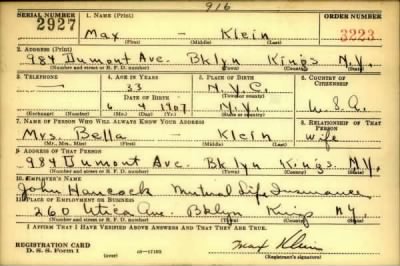 916
SERIAL NUMBER 1. NAME (Print) ORDER NUMBER
2927 Max — Klein 3223
(First) (Middle) (Last)
2. ADDRESS (Print)
984 Dumont Ave. Bklyn Kings N.Y.
(Number and street or R. F. D. number) (Town) (County) (State)
3. TELEPHONE 4. AGE IN YEARS 5. PLACE OF BIRTH 6. COUNTRY OF CITIZENSHIP
— 33 N.Y.C.
DATE OF BIRTH (Town or county)
6 4 1907 N.Y. U.S.A.
(Exchange) (Number) (Mo.) (Day) (Yr.) (State or country)
7. NAME OF PERSON WHO WILL ALWAYS KNOW YOUR ADDRESS 8. RELATIONSHIP OF THAT PERSON
Mrs. Bella — Klein Wife
(Mr., Mrs., Miss) (First) (Middle) (Last)
9. ADDRESS OF THAT PERSON
984 Dumont Ave. Bklyn Kings. N.Y.
(Number and street or R. F. D. number) (Town) (County) (State)
10. EMPLOYER'S NAME
John Hancock Mutual Life Insurance
11. PLACE OF EMPLOYMENT OR BUSINESS
260 Utica Ave. Bklyn Kings N.Y.
(Number and street or R. F. D. number) (Town) (County) (State)
I AFFIRM THAT I HAVE VERIFIED ABOVE ANSWERS AND THAT THEY ARE TRUE.
REGISTRATION CARD Max Klein
D. S. S. Form 1 (over) (Registrant's signature)